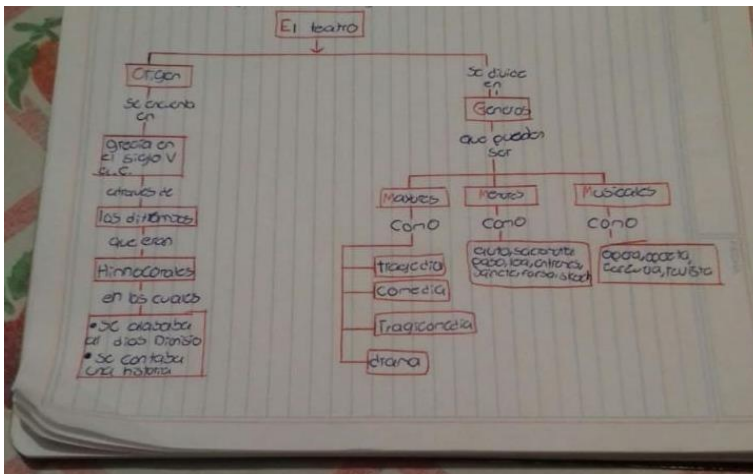 El teatro
Origen
Se encuenta
en
grecia en
el siglo V
a.C.
atraves de
los ditirambos
que eran
Himnocorales
en los cuales
• Se alababa
al dios Dionisio
• Se contaba
una historia
Se divide
en
Generos
que pueden
ser
Mayores
como
tragedia
comedia
Tragicomedia
drama
Menores
como
auto, sacramental
paso, loa, entremes,
sainete, farsa, skech
Musicales
como
opera, opereta
zarzuela, revista